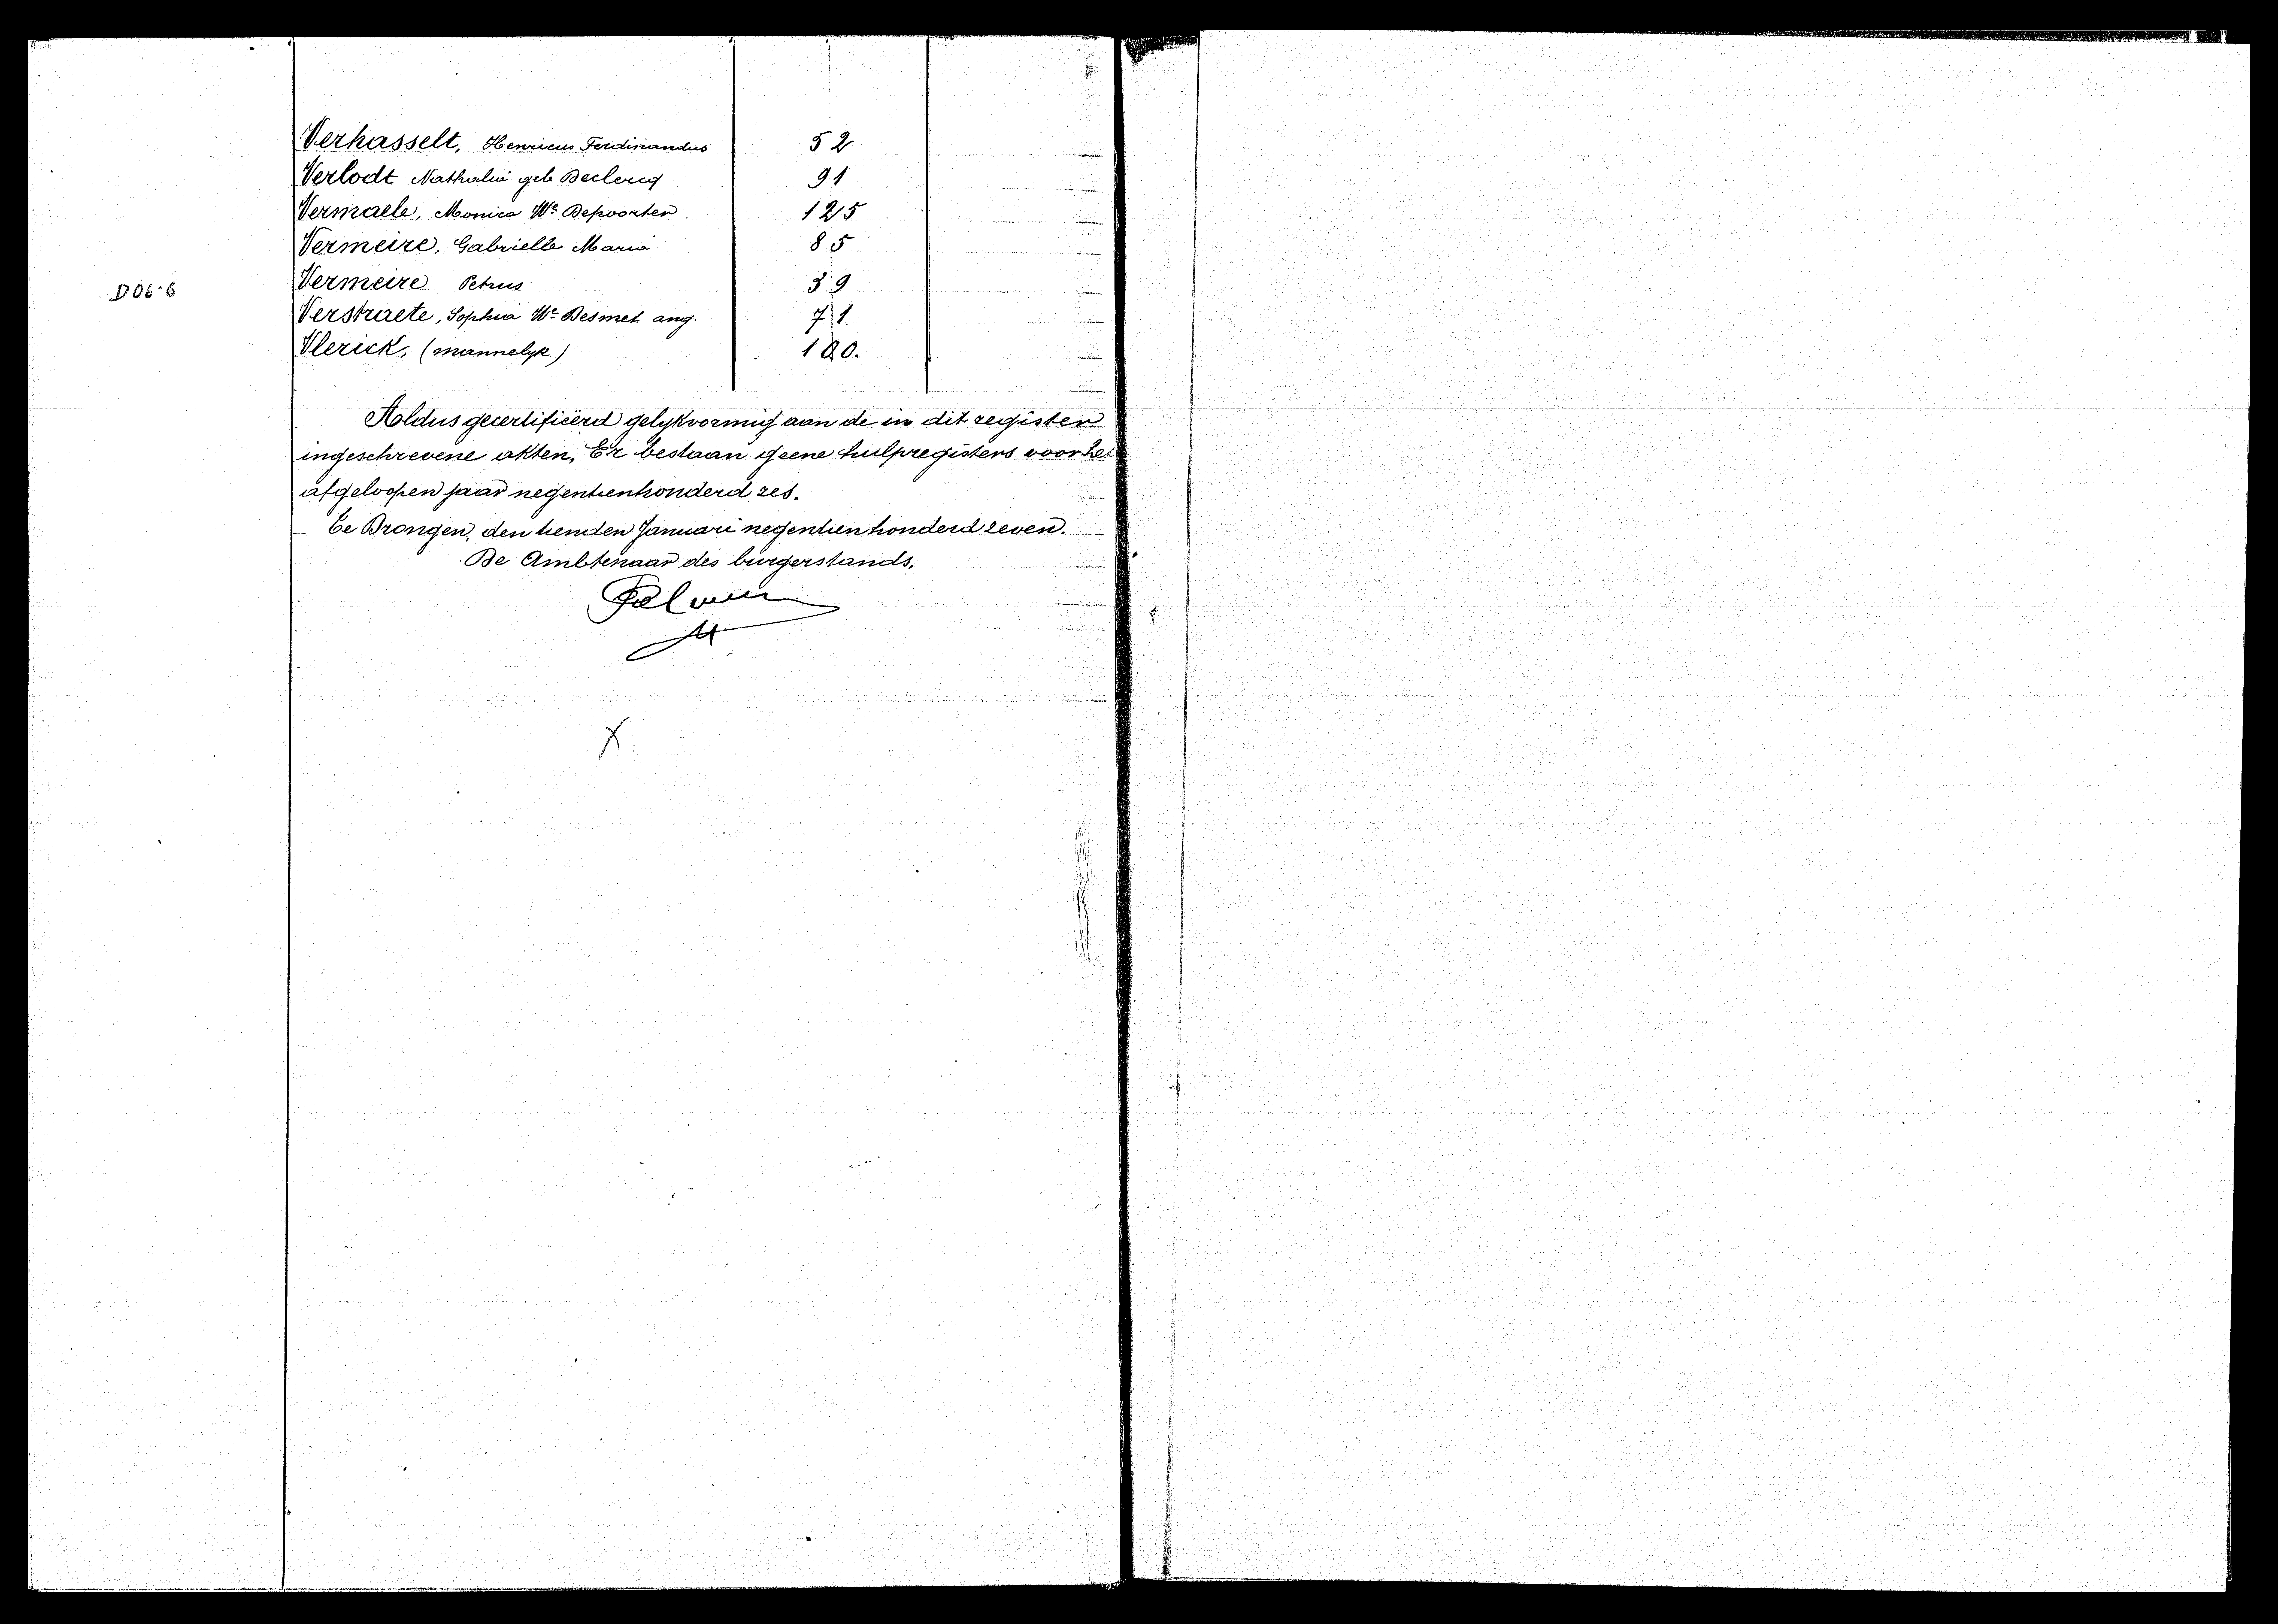 Verhasselt, Henricus Ferdinandus 52
Verlodt Nathalia geb Declercq 91
Vermaele, Monica We Depoorter 125
Vermeire, Gabrielle Maria 85
D06·6 Vermeire Petrus 39
Verstraete, Sophia We Desmet ang. 71.
Vlerick, (mannelyk) 100.
Aldus gecertifieërd gelykvormig aan de in dit register
ingeschrevene akten, Er bestaan geene hulpregisters voor het
afgeloopen jaar negentienhonderd zes.
Te Drongen, den tienden Januari negentienhonderd zeven.
De Ambtenaar des burgerstands,